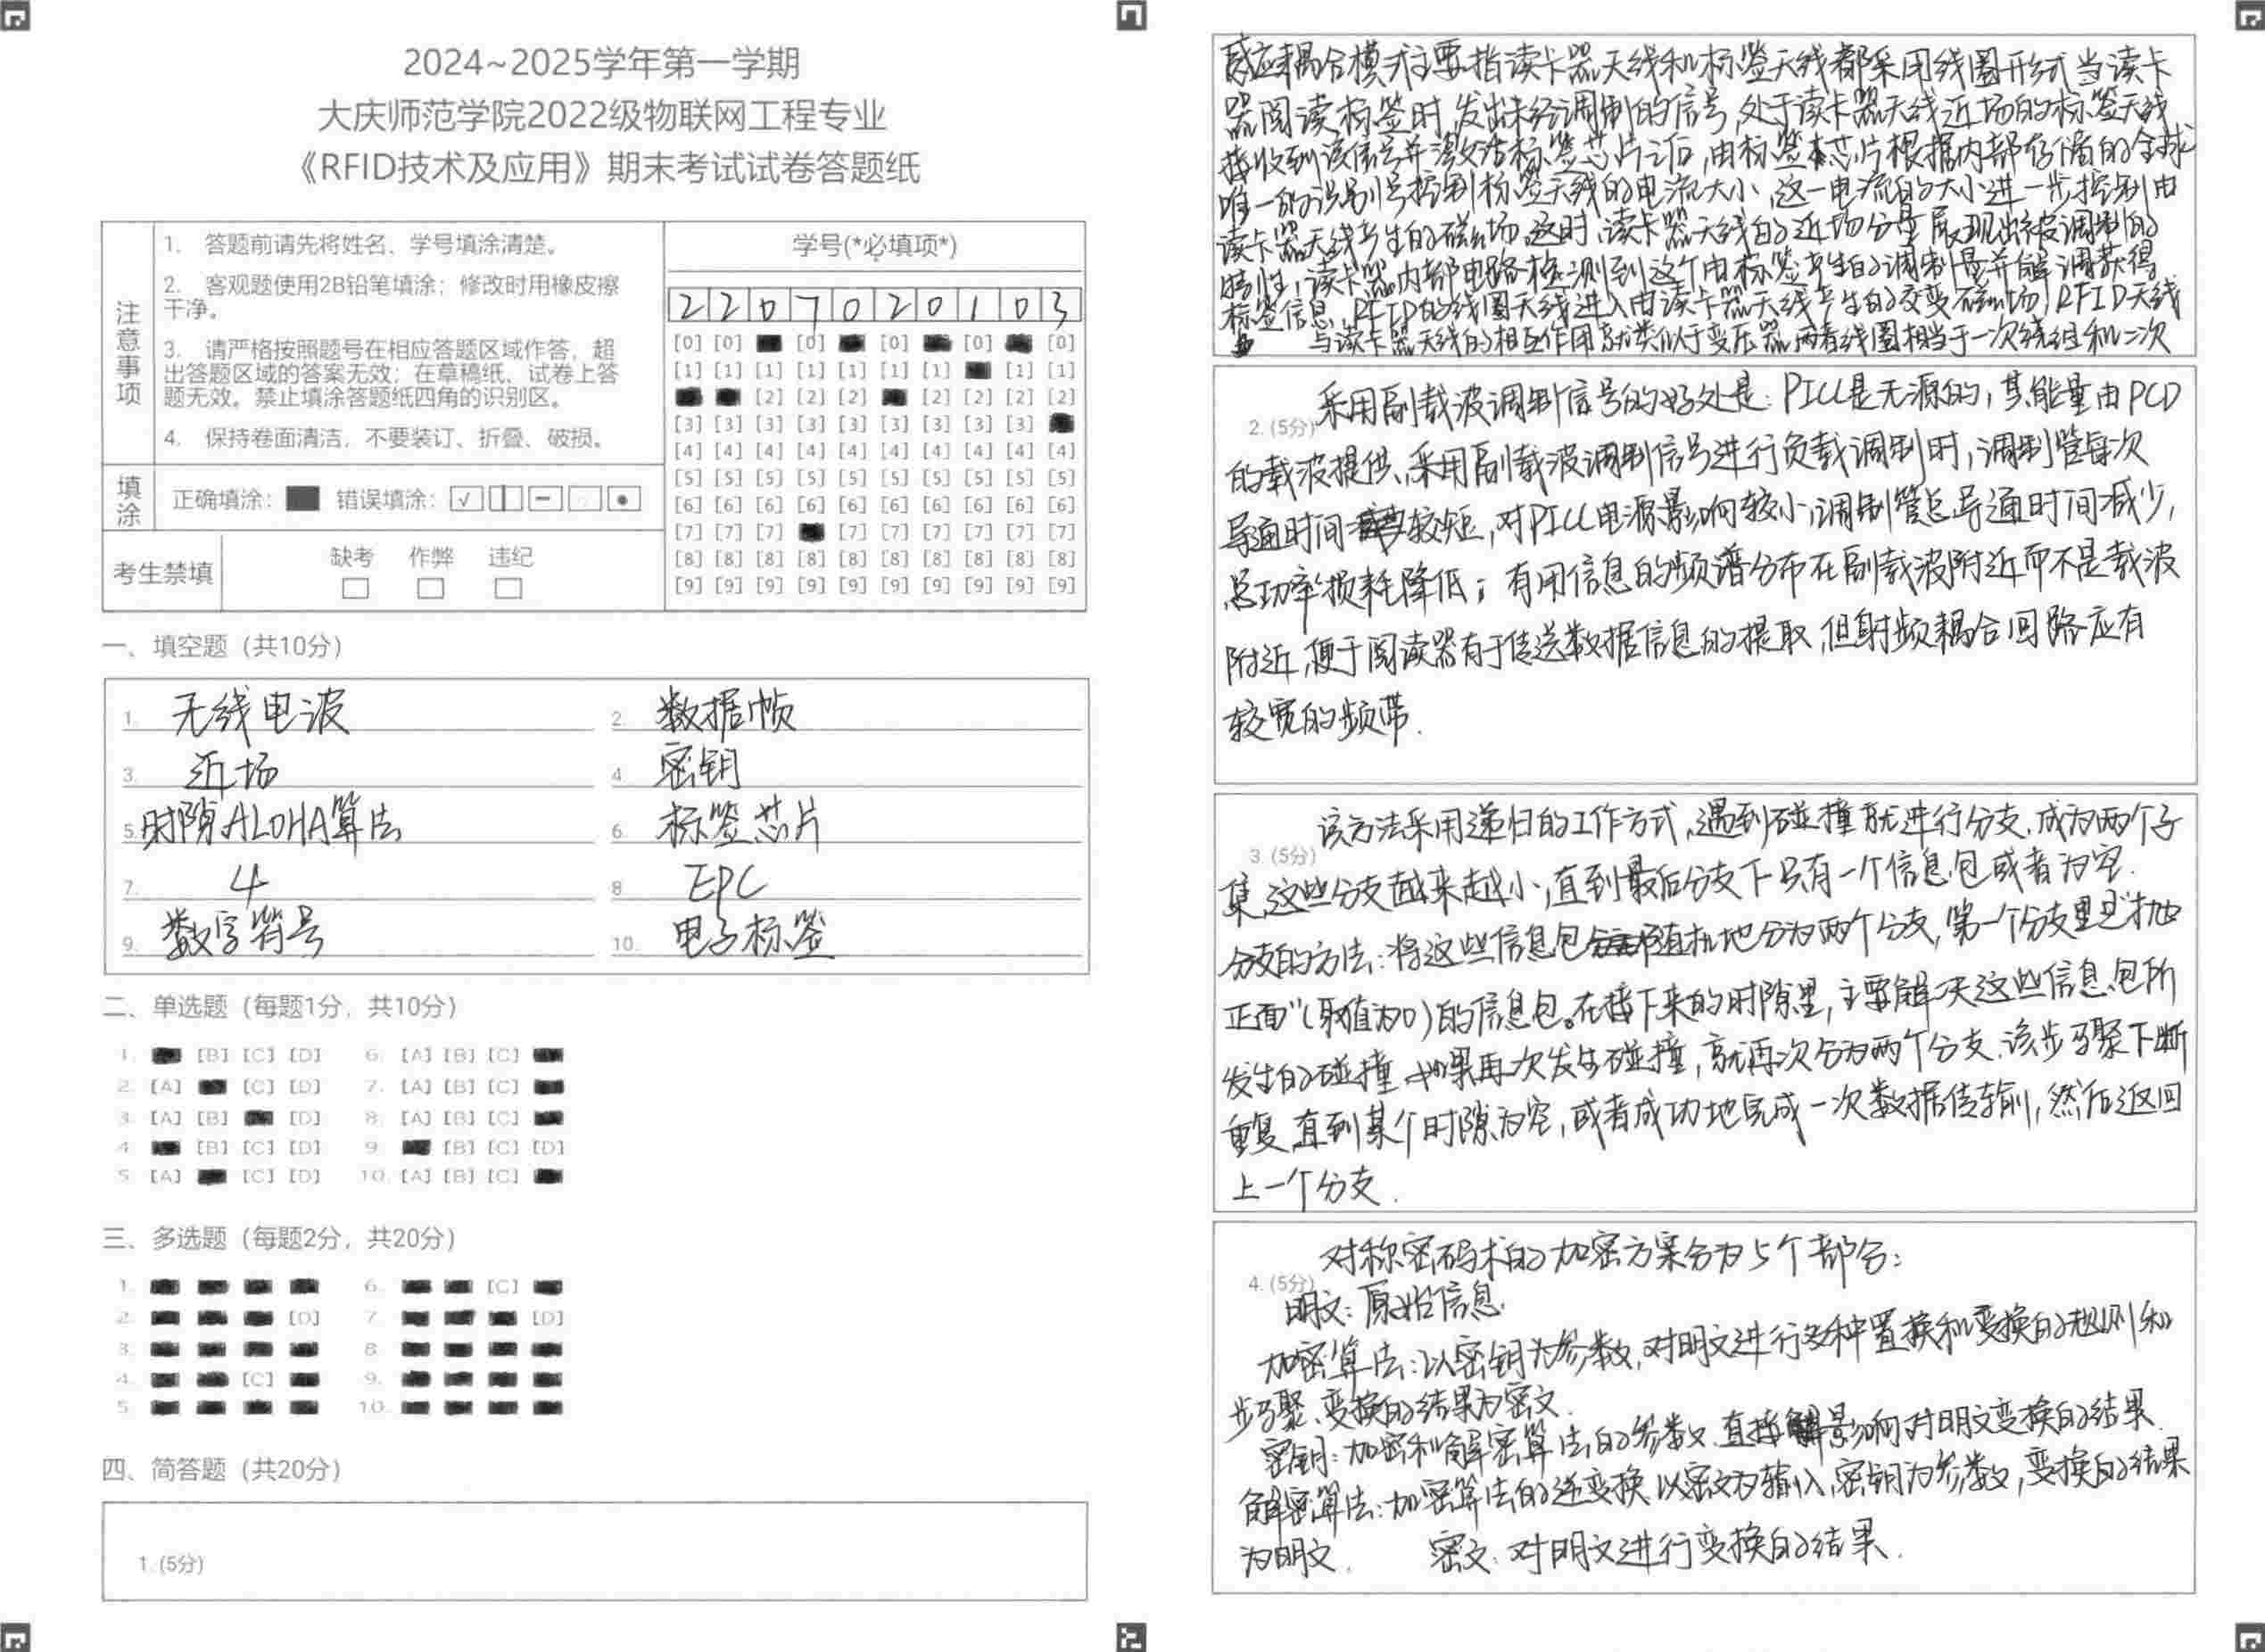 2024~2025学年第一学期
大庆师范学院2022级物联网工程专业
《RFID技术及应用》期末考试试卷答题纸
注意事项
1. 答题前请先将姓名、学号填涂清楚。
2. 客观题使用2B铅笔填涂；修改时用橡皮擦
干净。
3. 请严格按照题号在相应答题区域作答，超
出答题区域的答案无效；在草稿纸、试卷上答
题无效。禁止填涂答题纸四角的识别区。
4. 保持卷面清洁，不要装订、折叠、破损。
填涂
正确填涂： 错误填涂：
考生禁填
缺考 作弊 违纪
学号(*必填项*)
2 2 0 7 0 2 0 1 0 3
[0] [0] [0] [0] [0] [0]
[1] [1] [1] [1] [1] [1] [1] [1] [1]
[2] [2] [2] [2] [2] [2] [2]
[3] [3] [3] [3] [3] [3] [3] [3] [3]
[4] [4] [4] [4] [4] [4] [4] [4] [4] [4]
[5] [5] [5] [5] [5] [5] [5] [5] [5] [5]
[6] [6] [6] [6] [6] [6] [6] [6] [6] [6]
[7] [7] [7] [7] [7] [7] [7] [7] [7]
[8] [8] [8] [8] [8] [8] [8] [8] [8] [8]
[9] [9] [9] [9] [9] [9] [9] [9] [9] [9]
一、填空题（共10分）
1. 无线电波 2. 数据帧
3. 近场 4. 密钥
5. 时隙ALOHA算法 6. 标签芯片
7. 4 8. EPC
9. 数字符号 10. 电子标签
二、单选题（每题1分，共10分）
1. [B] [C] [D] 6. [A] [B] [C]
2. [A] [C] [D] 7. [A] [B] [C]
3. [A] [B] [D] 8. [A] [B] [C]
4. [B] [C] [D] 9. [B] [C] [D]
5. [A] [C] [D] 10. [A] [B] [C]
三、多选题（每题2分，共20分）
1. 6. [C]
2. [D] 7. [D]
3. 8.
4. [C] 9.
5. 10.
四、简答题（共20分）
1. (5分)
感应耦合模式主要指读卡器天线和标签天线都采用线圈形式当读卡
器阅读标签时,发出未经调制的信号,处于读卡器天线近场的标签天线
接收到该信号并激活标签芯片之后,由标签芯片根据内部存储的全球
唯一的识别号控制标签天线的电流大小,这一电流的大小进一步控制由
读卡器天线产生的磁场.这时,读卡器天线的近场分量展现出被调制的
特性,读卡器内部电路检测到这个由标签产生的调制量并解调获得
标签信息.RFID的线圈天线进入由读卡器天线产生的交变磁场,RFID天线
与读卡器天线的相互作用就类似于变压器.两者线圈相当于一次绕组和二次
采用副载波调制信号的好处是:PICC是无源的,其能量由PCD
2. (5分)
的载波提供,采用副载波调制信号进行负载调制时,调制管每次
导通时间较短,对PICC电源影响较小;调制管总导通时间减少,
总功率损耗降低;有用信息的频谱分布在副载波附近而不是载波
附近,便于阅读器有于传送数据信息的提取,但射频耦合回路应有
较宽的频带.
该方法采用递归的工作方式,遇到碰撞就进行分支,成为两个子
3. (5分)
集,这些分支越来越小,直到最后分支下只有一个信息包或者为空.
分支的方法:将这些信息包随机地分为两个分支,第一个分支里是"抛
正面"(取值为0)的信息包。在接下来的时隙里,主要解决这些信息包所
发生的碰撞.如果再次发生碰撞,就再次分为两个分支.该步骤不断
重复,直到某个时隙为空,或者成功地完成一次数据传输,然后返回
上一个分支.
对称密码术的加密方案分为5个部分:
4. (5分)
明文:原始信息.
加密算法:以密钥为参数,对明文进行多种置换和变换的规则和
步骤,变换的结果为密文.
密钥:加密和解密算法的参数.直接影响对明文变换的结果.
解密算法:加密算法的逆变换.以密文为输入,密钥为参数,变换的结果
为明文. 密文:对明文进行变换的结果.